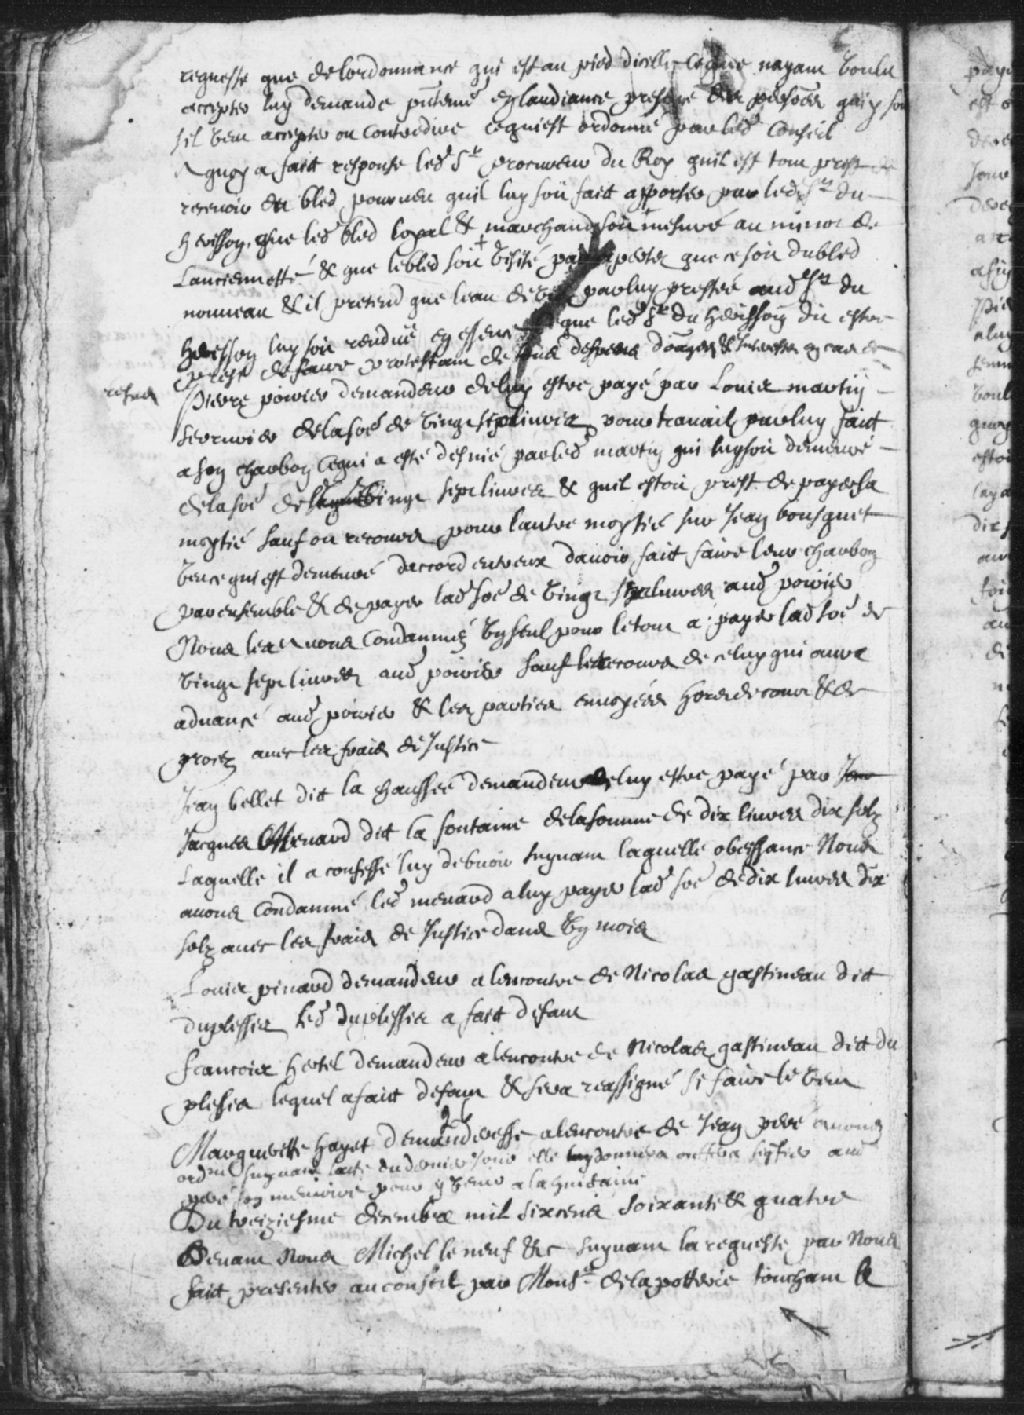 requeste que de lordonnance qui est au pied dicelle ce que nayant voulu
accepter luy demande en laudiance presence des personnes qui y sont
sil veut accepter ou contredire ce qui est ordonné par led Conseil
A quoy a fait response led Sr procureur du Roy quil est tout prest de
recevoir du bled pourveu quil luy soit fait apporter par led Sr du
herisson, que led bled loyal & marchand soit mesuré au minot de
Lancienneté & que le bled soit visité par expertz que ce soit du bled
nouveau & il pretend que leau de vie par luy prestée aud Sr du
Herisson luy soit rendue en essence que led Sr du Herisson dit estre
prest de faire protestant de tous despens domages & interestz en cas de
refus
Pierre poirier demandeur de luy estre payé par Louis martin
serrurier de la soe de vingt sept livres pour travail par luy fait
a son charbon ce qui a esté desnié par led martin qui luy soit demeuré
de la soe de vingt sept livres & quil estoit prest de payer la
moytié sauf son recours pour lautre moytié sur Jean bousquet
veu ce qui est demeuré daccord entreux davoir fait faire leur charbon
par ensemble & de payer lad soe de vingt sept livres aud poirier
Nous les avons condamnez un seul pour le tout a payer lad soe de
vingt sept livres aud poirier sauf le recours de celuy qui aura
advancé aud poirier & les parties envoyées hors de cour & de
procez avec les frais de Justice
Jean bellet dit la chaussée demandeur de luy estre payé par Jean
Jacques Menard dit la fontaine de la somme de dix livres dix solz
Laquelle il a confessé luy debvoir suyvant laquelle obeissance Nous
avons condamné led menard a luy payer lad soe de dix livres dix
solz avec les frais de Justice dans un mois
Louis pinard demandeur a lencontre de Nicolas gastineau dit
duplessis led duplessis a fait defaut
francois hertel demandeur a lencontre de Nicolas gastineau dit du
plessis lequel a fait defaut & sera reassigné si faire le veut
Marguerite hayet demanderesse a lencontre de Jean peré avons
ordné suyvant lacte du dernier jour elle donnera ou fera signifier aud
peré son memoire pour y venir a la huitaine
Du treiziesme decembre mil six cens soixante & quatre
Devant Nous Michel le neuf &c suyvant la requeste par Nous
fait presenter au conseil par Monsr de la potterie touchant le